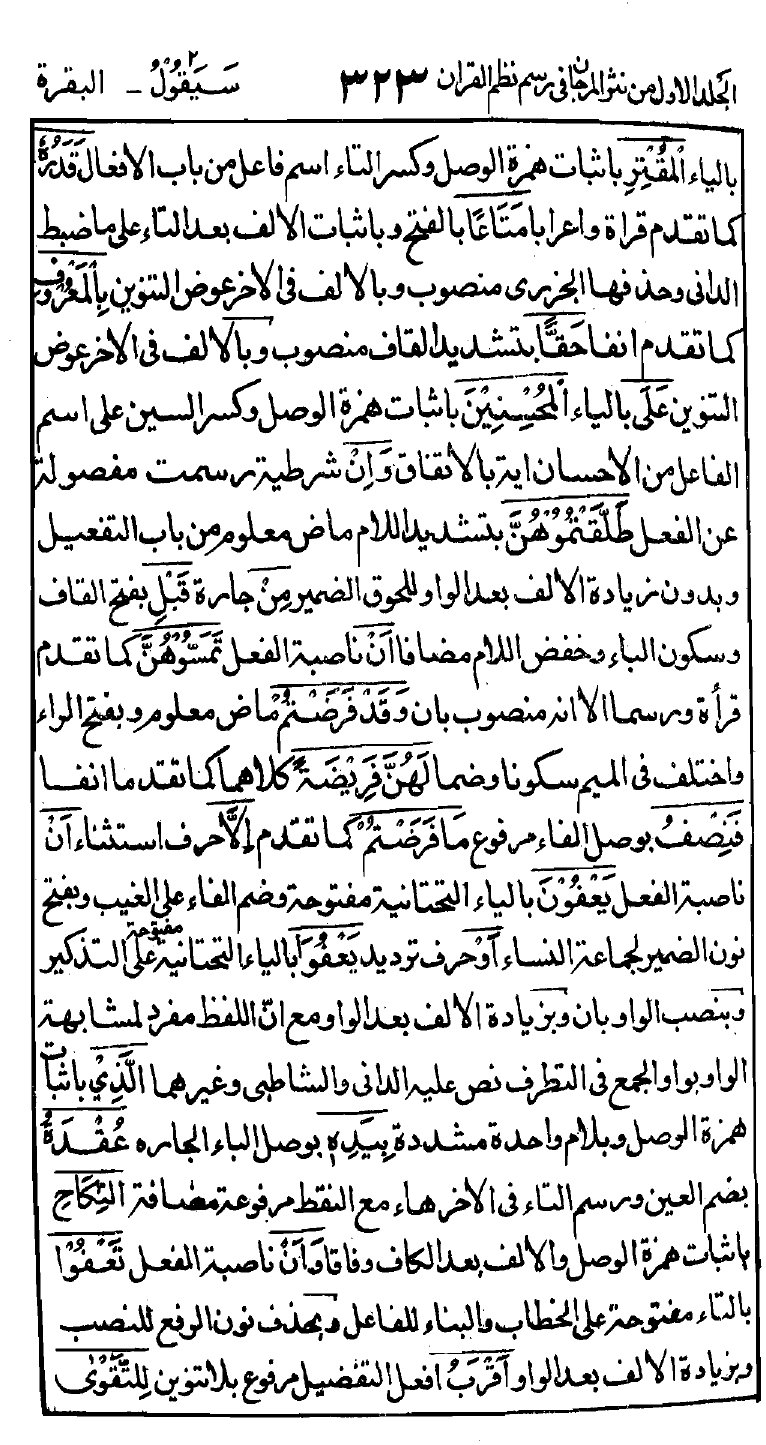 الجلد الاول من نثر المرجان فی رسم نظم القران ٣٢٣ سَيَقُوْلُ ٢ ـ البقرة
بالياء اَلْمُقْتِرِ باثبات همزة الوصل وكسر التاء اسم فاعل من باب الافعال قَدَرُهٗ
كما تقدم قراة واعرابا مَتَاعًا بالفتح وباثبات الالف بعد التاء علی ما ضبط
الدانی وحذفها الجزری منصوب وبالالف فی الاخر عوض التنوين بِالْمَعْرُوْفِ
كما تقدم انفا حَقًّا بتشديد القاف منصوب وبالالف فی الاخر عوض
التنوين عَلَی بالياء اَلْمُحْسِنِيْنَ باثبات همزة الوصل وكسر السين علی اسم
الفاعل من الاحسان اية بالاتفاق وَاِنْ شرطية رسمت مفصولة
عن الفعل طَلَّقْتُمُوْهُنَّ بتشديد اللام ماض معلوم من باب التفعيل
وبدون زيادة الالف بعد الواو للحوق الضمير مِنْ جارة قَبْلِ بفتح القاف
وسكون الباء وخفض اللام مضافا اَنْ ناصبة الفعل تَمَسُّوْهُنَّ كما تقدم
قرأة ورسما الا انه منصوب بان وَقَدْ فَرَضْتُمْ ماض معلوم وبفتح الراء
واختلف فی الميم سكونا وضما لَهُنَّ فَرِيْضَةً كلاهما كما تقدما انفا
فَنِصْفُ بوصل الفاء مرفوع مَا فَرَضْتُمْ كما تقدم اِلَّا حرف استثناء اَنْ
ناصبة الفعل يَعْفُوْنَ بالياء التحتانية مفتوحة وضم الفاء علی الغيب وبفتح
نون الضمير لجماعة النساء اَوْ حرف ترديد يَعْفُوَا بالياء التحتانية مفتوحة علی التذكير
وبنصب الواو بان وبزيادة الالف بعد الواو مع انّ اللفظ مفرد لمشابهة
الواو بواو الجمع فی التطرف نص عليه الدانی والشاطبی وغيرهما الَّذِيْ باثبات
همزة الوصل وبلام واحدة مشددة بِيَدِهٖ بوصل الباء الجاره عُقْدَةُ
بضم العين ورسم التاء فی الاخر هاء مع النقط مرفوعة مضافة النِّكَاحِ
باثبات همزة الوصل والالف بعد الكاف وفاقا وَاَنْ ناصبة الفعل تَعْفُوْا
بالتاء مفتوحة علی الخطاب والبناء للفاعل وبحذف نون الرفع للنصب
وبزيادة الالف بعد الواو اَقْرَبُ افعل التفضيل مرفوع بلا تنوين لِلتَّقْوٰی